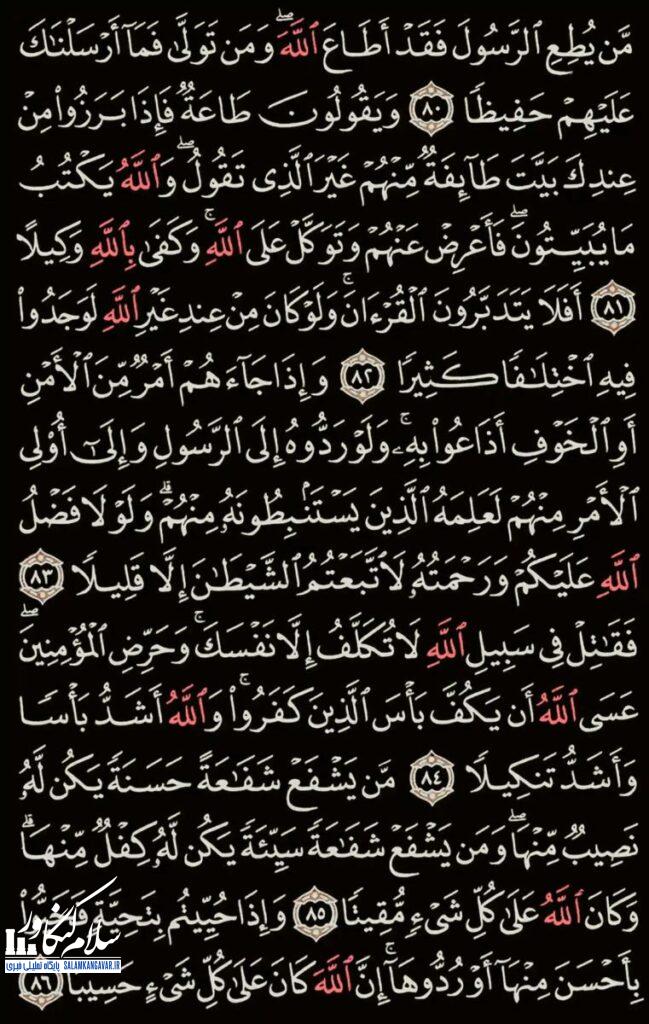 مَّن يُطِعِ ٱلرَّسُولَ فَقَدْ أَطَاعَ ٱللَّهَۖ وَمَن تَوَلَّىٰ فَمَآ أَرْسَلْنَٰكَ
عَلَيْهِمْ حَفِيظًا ٨٠ وَيَقُولُونَ طَاعَةٌ فَإِذَا بَرَزُوا۟ مِنْ
عِندِكَ بَيَّتَ طَآئِفَةٌ مِّنْهُمْ غَيْرَ ٱلَّذِى تَقُولُۖ وَٱللَّهُ يَكْتُبُ
مَا يُبَيِّتُونَۖ فَأَعْرِضْ عَنْهُمْ وَتَوَكَّلْ عَلَى ٱللَّهِۚ وَكَفَىٰ بِٱللَّهِ وَكِيلًا
٨١ أَفَلَا يَتَدَبَّرُونَ ٱلْقُرْءَانَۚ وَلَوْ كَانَ مِنْ عِندِ غَيْرِ ٱللَّهِ لَوَجَدُوا۟
فِيهِ ٱخْتِلَٰفًا كَثِيرًا ٨٢ وَإِذَا جَآءَهُمْ أَمْرٌ مِّنَ ٱلْأَمْنِ
أَوِ ٱلْخَوْفِ أَذَاعُوا۟ بِهِۦۚ وَلَوْ رَدُّوهُ إِلَى ٱلرَّسُولِ وَإِلَىٰٓ أُو۟لِى
ٱلْأَمْرِ مِنْهُمْ لَعَلِمَهُ ٱلَّذِينَ يَسْتَنۢبِطُونَهُۥ مِنْهُمْۗ وَلَوْلَا فَضْلُ
ٱللَّهِ عَلَيْكُمْ وَرَحْمَتُهُۥ لَٱتَّبَعْتُمُ ٱلشَّيْطَٰنَ إِلَّا قَلِيلًا ٨٣
فَقَٰتِلْ فِى سَبِيلِ ٱللَّهِ لَا تُكَلَّفُ إِلَّا نَفْسَكَۚ وَحَرِّضِ ٱلْمُؤْمِنِينَۖ
عَسَى ٱللَّهُ أَن يَكُفَّ بَأْسَ ٱلَّذِينَ كَفَرُوا۟ۚ وَٱللَّهُ أَشَدُّ بَأْسًا
وَأَشَدُّ تَنكِيلًا ٨٤ مَّن يَشْفَعْ شَفَٰعَةً حَسَنَةً يَكُن لَّهُۥ
نَصِيبٌ مِّنْهَاۖ وَمَن يَشْفَعْ شَفَٰعَةً سَيِّئَةً يَكُن لَّهُۥ كِفْلٌ مِّنْهَاۗ
وَكَانَ ٱللَّهُ عَلَىٰ كُلِّ شَىْءٍ مُّقِيتًا ٨٥ وَإِذَا حُيِّيتُم بِتَحِيَّةٍ فَحَيُّوا۟
بِأَحْسَنَ مِنْهَآ أَوْ رُدُّوهَآۗ إِنَّ ٱللَّهَ كَانَ عَلَىٰ كُلِّ شَىْءٍ حَسِيبًا ٨٦
سلام کنگاور
پایگاه تحلیلی خبری SALAMKANGAVAR.IR